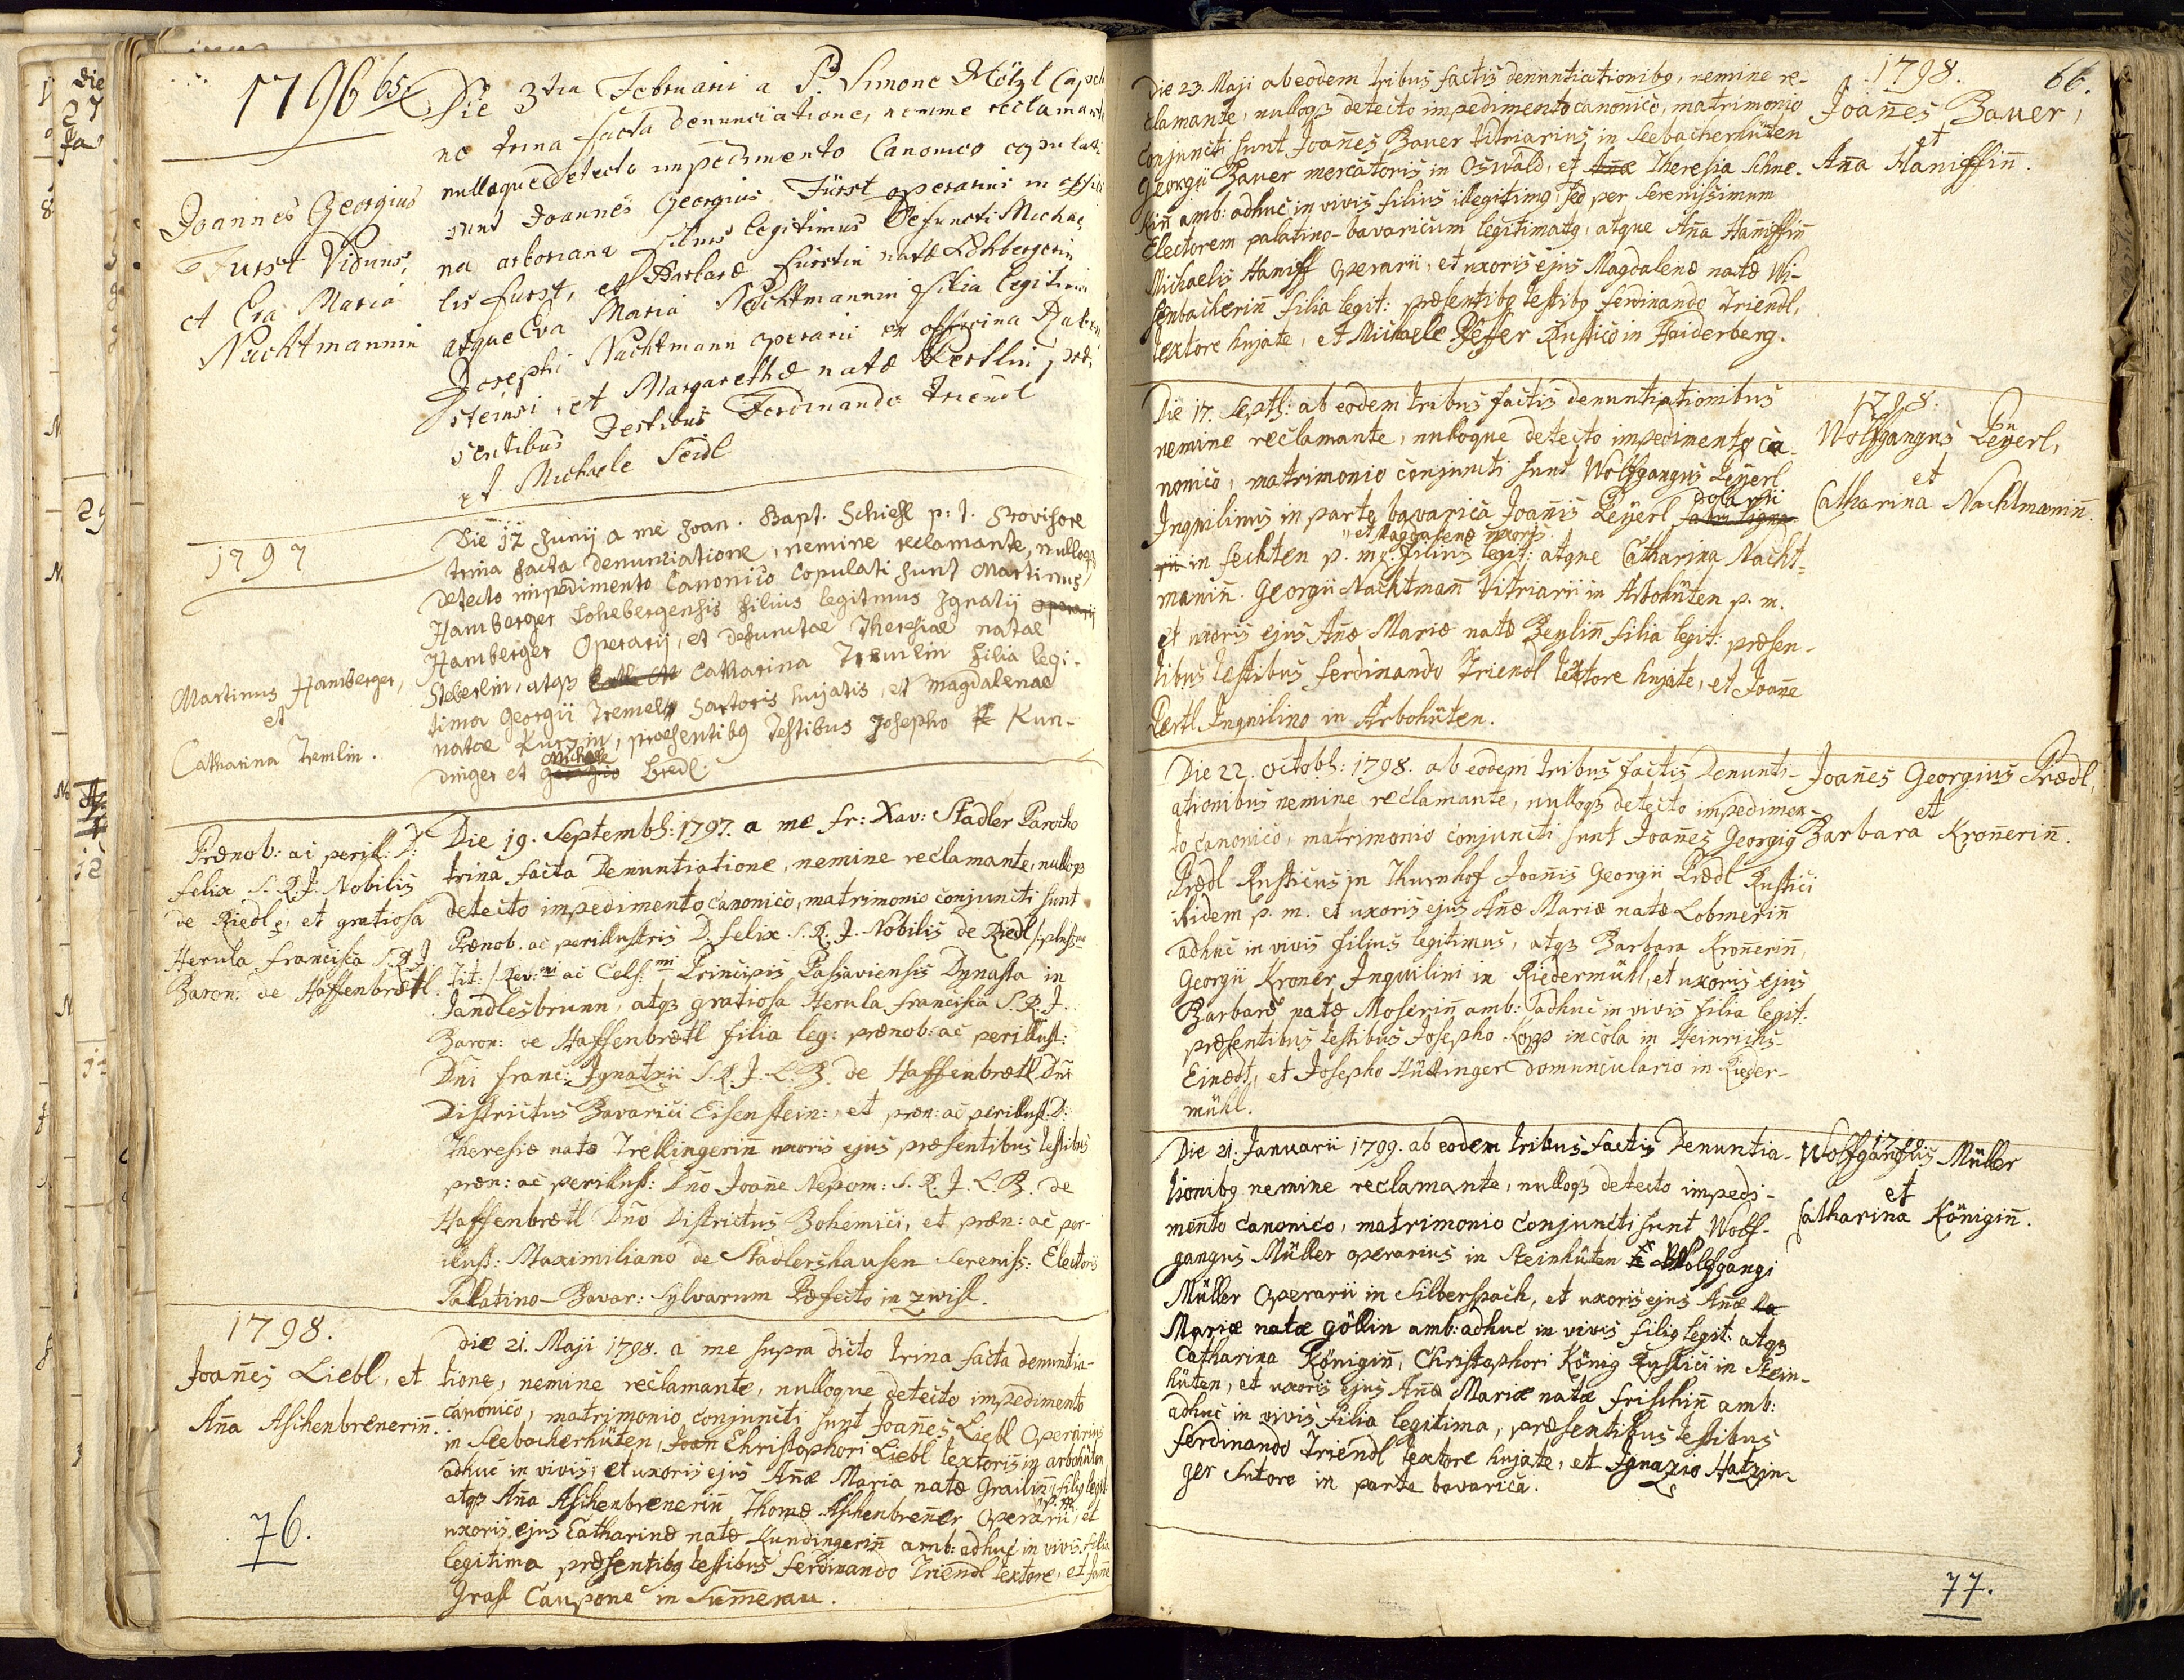 1796
65.
Die 3tia Februarii a P. Simone Hötzl Cap
no trina facta denunciatione, nemine reclamant
nulloque detecto impedimento Canonico copulati
sunt Joannes Georgius Fürst operarius in offici
na arboriana filius legitimus Defuncti Michae
lis Fürst, et Barbaræ Fürstin natæ Lohbergerin
atque Eva Maria Nachtmannin filia legitima
Josephi Nachtmann operarii ex officina
steinsi, et Margarethæ natæ Pertlin præ
sentibus Testibus Ferdinando Triendl
et Michaele Seidl
Joannes Georgius
Fürst Viduus,
et Eva Maria
Nachtmannin
1797
Die 12 Junij a me Joan. Bapt. Schiesl p: t. Provisore
trina facta denunciatione, nemine reclamante, nulloqз
detecto impedimento Canonico Copulati sunt Martinus
Hamberger Lohebergensis filius legitmus Ignatij operarij
Hamberger Operarij, et defunctae Theresiae natae
Steberlin, atqз Catharina Tremlin filia legi-
tima Georgii Tremel Sartoris hujatis, et Magdalenae
natae Kurzin, praesentibꝯ Testibus Josepho Kun-
dinger et georgio Michaele Bredl.
Martinus Hamberger,
et
Catharina Tremlin.
Prænob: ac peril: D:
Felix S. R. J. Nobilis
de Riedl, et gratiosa
Herula Francisca S. R. J.
Baron: de Haffenbrætl.
Die 19. Septemb: 1797. a me Fr: Xav: Stadler Parocho
trina facta Denuntiatione, nemine reclamante, nulloqз
detecto impedimento canonico, matrimonio conjuncti sunt
Prænob. ac perillustris D. Felix S. R. J. Nobilis de Riedl
tit:/ Rev:mi ac Cels:mi Principis Passaviensis Dynasta in
Jandlesbrunn, atqз gratiosa Herula Francisca S. R. J.
Baron: de Haffenbrætl filia leg: prænob: ac perillust:
Dni Franc: Ignatzii S. R. J. L. B. de Haffenbrætl Dni
Districtus Bavarici Eisenstein: et præn: ac perillust. D:
Theresiæ natæ Trellingerin uxoris ejus præsentibus testibus
præn: ac perillust: Dno Joane Nepom: S. R. J. L. B. de
Haffenbrætl Dno Districtus Bohemici, et præn: ac per-
illust: Maximiliano de Stadlershausen sereniss: Electoris
Palatino-Bavar: Sylvarum Præfecto in Zwisl.
1798.
Joanes Liebl, et
Ana Aschenbrenerin.
Die 21. Maji 1798. a me supra dicto trina facta denuntia-
tione, nemine reclamante, nulloque detecto impedimento
canonico, matrimonio conjuncti sunt Joanes Liebl Operarius
in Seebacherhüten, Joan Christophori Liebl textoris in arbohüten
adhuc in vivis, et uxoris ejus Anæ Maria natæ Grailin filiꝯ legit.
atqз Ana Aschenbrenerin Thomæ Aschenbrener Operarii p. m., et
uxoris ejus Catharinæ natæ Kundingerin amb: adhuc in vivis filia
legitima præsentibꝯ testibus Ferdinando Triendl textore, et Joane
Grasl Caupone in Sumerau.
76.
66.
Die 23. Maji ab eodem tribus factis denuntiationibꝯ, nemine re-
clamante, nulloqз detecto impedimento canonico, matrimonio
conjuncti sunt Joanes Bauer vitriarius in Seebacherhüten
Georgii Bauer mercatoris in Oswald, et Anæ Theresia Schne-
kin amb: adhuc in vivis filius illegitimꝯ, sed per serenissimum
Electorem palatino-bavaricum legitimatꝯ, atque Ana Haniffin
Michaelis Haniff Operarii, et uxoris ejus Magdalenæ natæ Wi-
senbacherin filia legit: præsentibꝯ testibꝯ Ferdinando Triendl,
textore hujate, et Michaele Pfeffer Rustico in Haiderberg.
1798.
Joanes Bauer,
et
Ana Haniffin.
Die 17. Septb: ab eodem tribus factis denuntiationibus
nemine reclamante, nulloque detecto impedimento ca-
nonico, matrimonio conjuncti sunt Wolfgangus Leyerl
Inquilinus in parte bavarica Joanis Leyerl
et Magdalenæ uxoris
in Fechten p. m. filius legit: atque Catharina Nacht-
manin. Georgii Nachtman Vitriarii in Arbohüten p. m.
et uxoris ejus Anæ Mariæ natæ Beylin filia legit: præsen-
tibus testibus Ferdinando Triendl textore hujate, et Joane
Pertl Inquilino in Arbohüten.
1798.
Wolfgangus Leyerl,
et
Catharina Nachtmanin.
Die 22. octobl: 1798. ab eodem tribus factis Denunti-
ationibus nemine reclamante, nulloqз detecto impedimen-
to canonico, matrimonio conjuncti sunt Joanes Georgiꝯ
Prædl Rusticus in Thurnhof Joanis Georgii Prædl Rustici
ibidem p. m. et uxoris ejus Anæ Mariæ natæ Lobmerin
adhuc in vivis filius legitimus, atqз Barbara Kronerin,
Georgii Kroner Inquilini in Riedermühl, et uxoris ejus
Barbaræ natæ Moserin amb: adhuc in vivis filia legit:
præsentibus testibus Josepho Kopp incola in Heinrichs-
Einædt, et Josepho Hüttinger domunculario in Rieder-
mühl.
Joanes Georgius Prædl,
et
Barbara Kronerin.
Die 21. Januarii 1799. ab eodem tribus factis Denuntia-
tionibꝯ nemine reclamante, nulloqз detecto impedi-
mento canonico, matrimonio conjuncti sunt Wolf-
gangus Müller operarius in Steinhüten Wolfgangi
Müller Operarii in Silberspach, et uxoris ejus Anæ
Mariæ natæ göllin amb: adhuc in vivis filiꝯ legit: atqз
Catharina Königin, Christophori König Rustici in Stein-
hüten, et uxoris ejus Anæ Mariæ natæ Frischin amb:
adhuc in vivis filia legitima, præsentibus testibus
Ferdinando Triendl textore hujate, et Ignazio Hatzin-
ger Sutore in parte bavarica.
Wolfgangus Müller
et
Catharina Königin.
77.